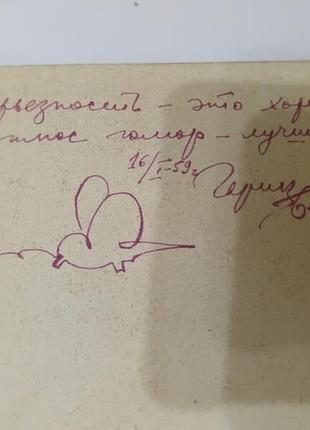 рьезность - это хор
плюс юмор - лучш
16/I-59г.